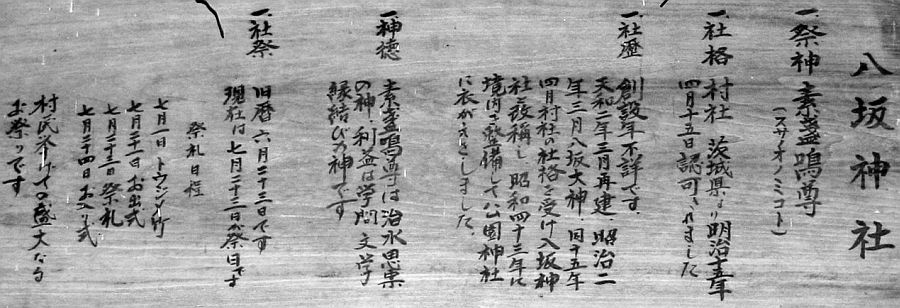 八坂神社
一、祭神 素盞鳴尊
(スサノオノミコト)
一、社格 村社 茨城県より明治十五年
四月十五日認可されました
一、社歴
創設年不詳です。
天和二年三月再建、明治二
年三月八坂大神 同十五年
四月村社の社格を受け八坂神
社と改称し 昭和四十三年に
境内を整備して公園神社
に衣がえをしました。
一、神徳
素盞鳴尊は治水思案
の神、利益は学問 文学
縁結びの神です
一、社祭
旧暦 六月二十三日です
現在は七月二十三日が祭日です
祭礼日程
七月一日
七月二十日 お出式
七月二十三日 祭礼
七月二十四日
村民挙げての盛大なる
お祭りです